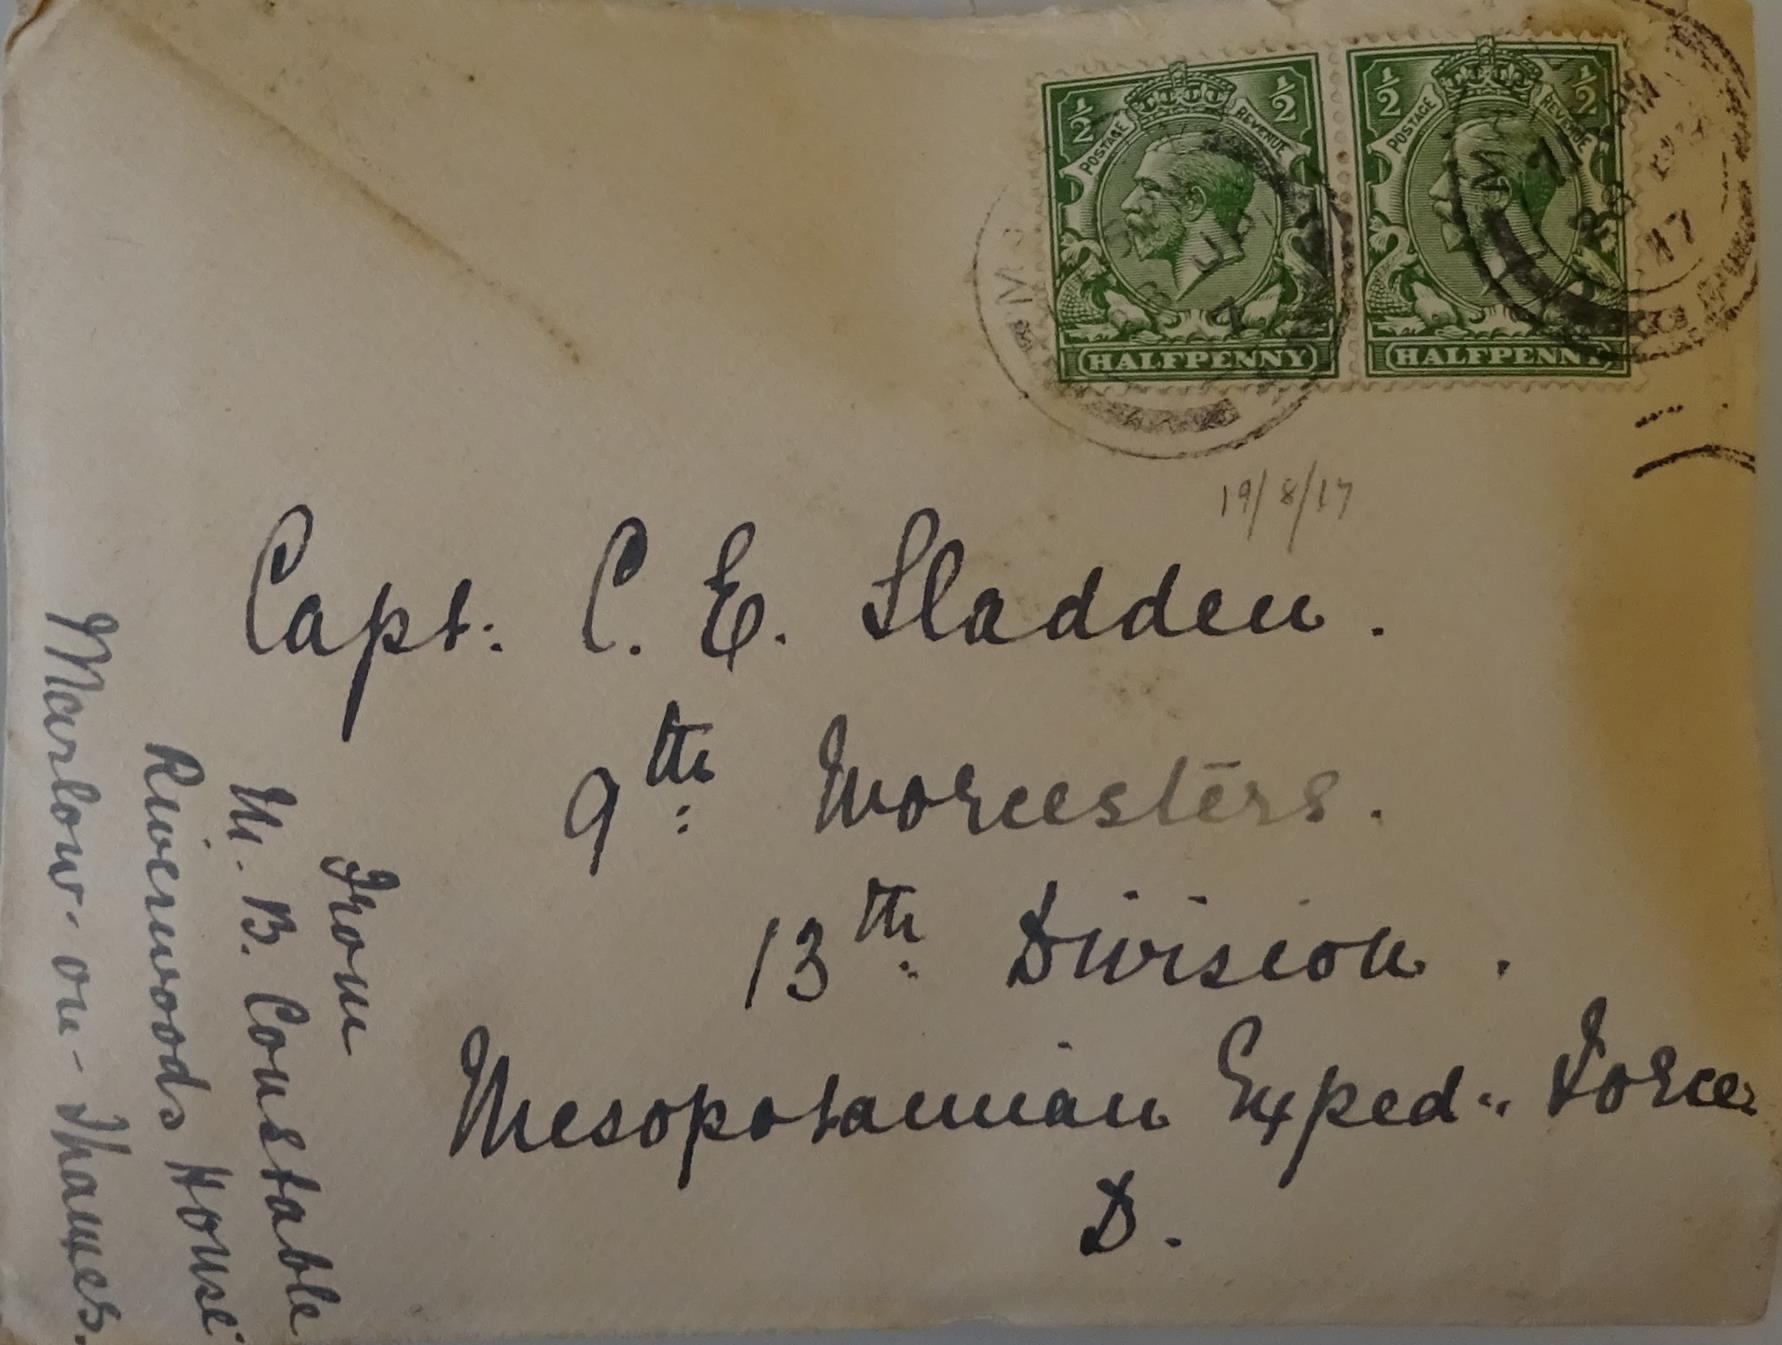 ½ POSTAGE REVENUE ½
HALFPENNY
½ POSTAGE REVENUE ½
HALFPENNY
17
19/8/17
Capt. C. E. Sladden.
9th Worcesters.
13th Division.
Mesopotamian Exped.. Force
D.
From
M. B. Constable
Riverwoods House
Marlow-on-Thames.